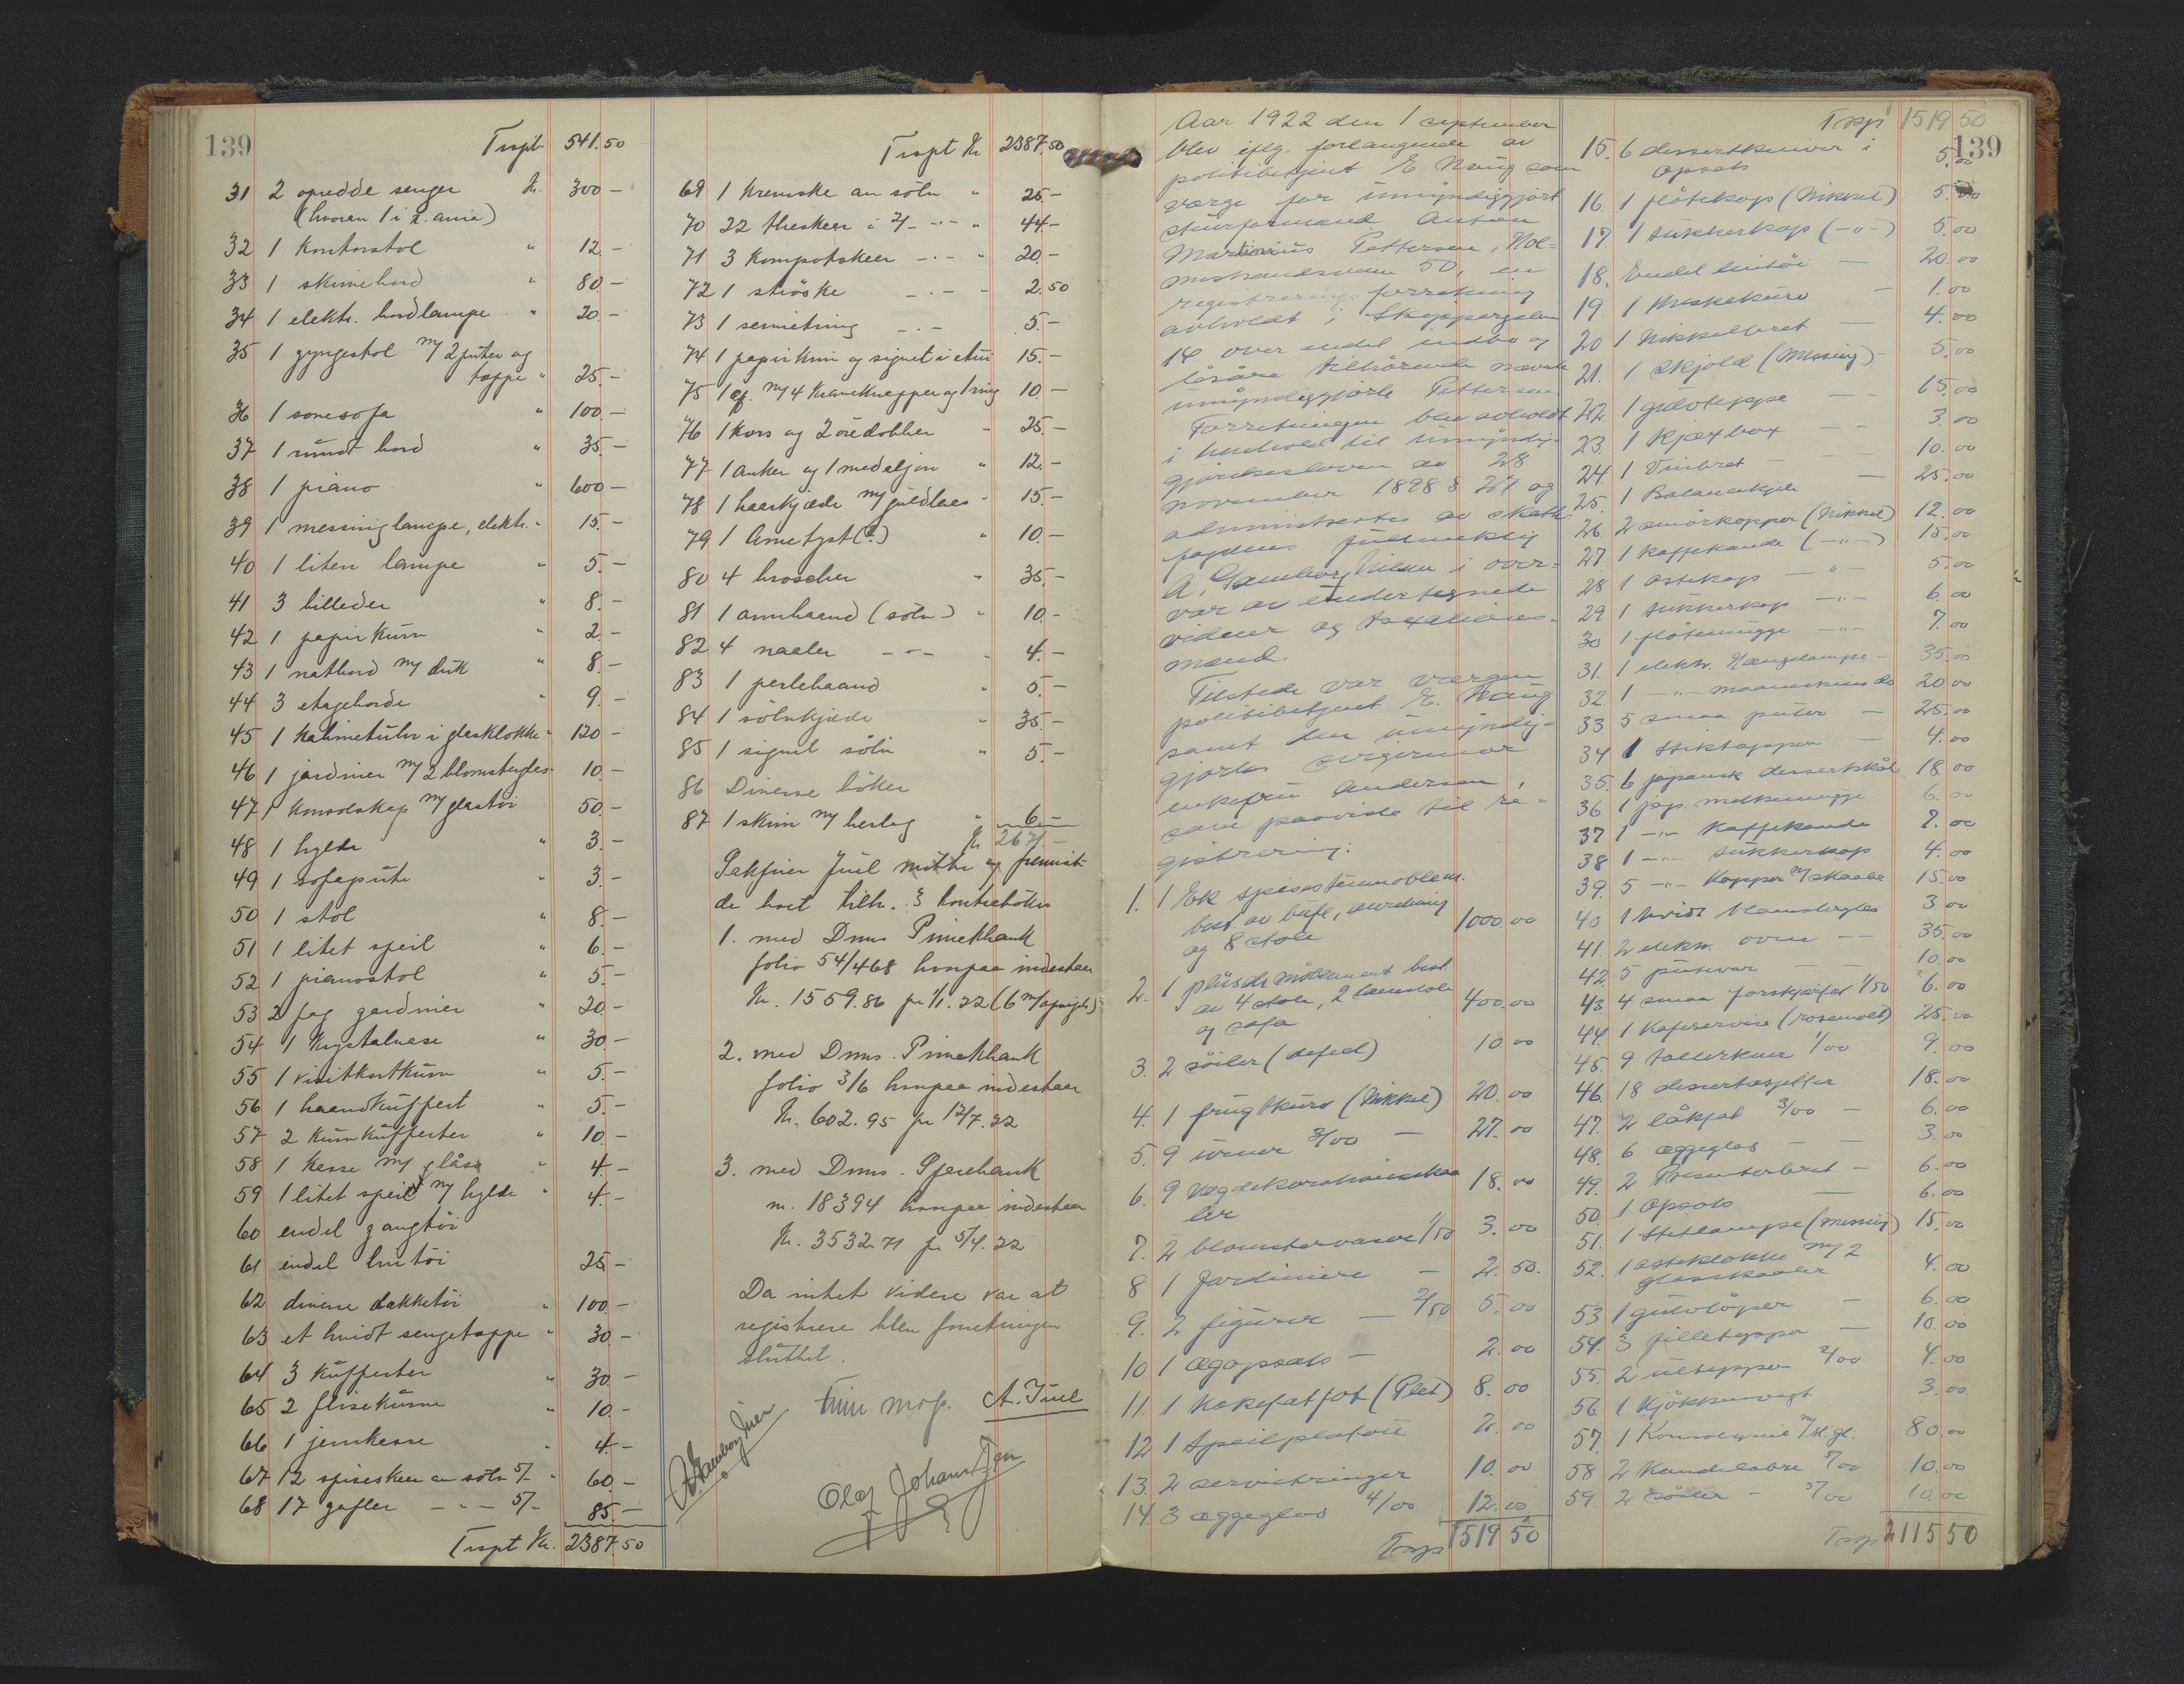 139
Trspt 541.50
31 2 opredde senger Kr. 300 –
(hvorav 1 i 2. arie)
32 1 Kontorstol " 12. –
33 1 skrivebord " 80 –
34 1 elektr. bordlampe " 20 –
35 1 gyngestol m/ 2 puter og
teppe " 25. –
36 1 sovesofa " 100. –
37 1 rundt bord " 35. –
38 1 piano " 600 –
39 1 messinglampe, elektr. " 15. –
40 1 liten lampe " 5. –
41 3 billeder " 8. –
42 1 papirkurv " 2. –
43 1 natbord m/ duk " 8. –
44 3 etageborde " 9. –
45 1 Kabinetuhr i glasklokke " 120 –
46 1 jardinier m/ 2 blomsterglas " 10. –
47 1 Konsolskap m/ glastøi 50. –
48 1 hylde " 3. –
49 1 sofapute " 3. –
50 1 stol " 8. –
51 1 litet speil " 6. –
52 1 pianostol " 5. –
53 2 fag gardiner " 20. –
54 1 Krystalvase " 30. –
55 1 visitkortkurv " 5. –
56 1 haandkuffert " 5. –
57 2 Kurvkufferter " 10. –
58 1 kasse m/ låse " 4. –
59 1 litet speil m/ hylde " 4. –
60 endel gangtöi
61 endel lintöi 25. –
62 diverse dækketöi " 100. –
63 et hvidt sengeteppe " 30. –
64 3 Kufferter " 30. –
65 2 flisekurve " 10. –
66 1 jernkasse " 4. –
67 12 spiseskeer av sölv 5/– " 60. –
68 17 gafler – " – 5/– 85. –
Trspt Kr. 2387.50
Trspt Kr 2387.50
69 1 Kremske av sölv " 25. –
70 22 theskeer à 2/– – " – " 44. –
71 3 Kompotskeer – " – " 20. –
72 1 ströske – " – " 2.50
73 1 serviettring – " – 5. –
74 1 papirkniv og signet i etui 15. –
75 1 æ. m/ 4 kraveknapper og 1 ring 10. –
76 1 Kors og 2 öredobber " 25. –
77 1 anker og 1 medaljon " 12. –
78 1 haarkjede m/ guldlaas " 15. –
79 1 Ametyst (?) " 10. –
80 4 broscher " 35. –
81 1 armbaand (sölv) " 10. –
82 4 naaler – " – " 4. –
83 1 perlebaand " 5. –
84 1 sölvkjede " 35. –
85 1 signet sölv " 5. –
86 Diverse böker
87 1 skrin m/ beslag " 6. –
Kr 2671 –
Sakförer Juel mötte og fremvist-
de boet tilh. 3 kontraböker
1. med Dnms Privatbank
folio 54/468 hvorpaa indestaar
Kr. 1559.86 pr 1/1. 22 (6 m/ opsigelse)
2. med Dnms. Privatbank
folio 3/6 hvorpaa indestaar
Kr. 602.95 pr 12/7. 22
3. med Dnms. Sparebank
nr. 18394 hvorpaa indestaar
Kr. 3532.71 pr 5/4. 22
Da intet videre var at
registrere blev forretningen
sluttet.
A. Juel
Olaf Johansen
Aar 1922 den 1 september
blev iflg. forlangende av
politibetjent E. Haug som
verge for umyndiggjort
stuerformand Anton
Martinius Pettersen, Hol-
mestrandsveien 50, en
registrerings forretning
avholdt i Skoppergaten
14 over endel indbo og
lösöre tilhörende nævnte
umyndiggjorte Pettersen
Forretningen blev avholdt
i henhold til umyndig-
gjørelsesloven av 28
november 1898 § 27 og
administrertes av skatte-
fogdens fuldmektig
A. Ramborg Nilsen i over-
vær av undertegnede
vidner og taxations-
mænd.
Tilstede var vergen
politibetjent E. Haug
samt den umyndig-
gjortes svigermor
enkefru Andersen,
som paaviste til re-
gistrering.
1. 1 Ek spisestuemöblem.
best. av buffe, anretning
og 8 stole 1000.00
2. 1 plüsch möblement best.
av 4 stole, 2 lænestole
og sofa 400.00
3. 2 söiler (defect) 10.00
4. 1 frugtkurv (Nikkel) 20.00
5. 9 3/00 – 27.00
6. 9 Vægdekorationsskaa
ler 18.00
7. 2 blomstervaser 1/50 3.00
8 1 Jardiniere – 2.50.
9. 2 figurer – 2/50 5.00
10 1 ægopsats – 2.00
11. 1 Kakefatfot (Plet) 8.00
12 1 Speilplateu 2.00
13. 2 servietringer 10.00
14. 3 æggeglas 4/00 12.00
Trsp 1519 50
Trsp 1519 50
139
15. 6 dessertkniver i
opsats 5.00
16. 1 flötekop (Nikkel) 5.00
17. 1 sukkerkop (–"–) 5.00
18. Endel lintöi – 20.00
19. 1 Kurv – 1.00
20 1 Nikkelbret – 4.00
21. 1 Skjold (Messing) – 5.00
22. 1 gulvteppe – – 65.00
23. 1 Kjexbox – – 3.00
24. 1 Vinbret – – 10.00
25. 1 – 25.00
26 2 smörkopper (Nikkel) 12.00
27. 1 Kaffekande (–"–) 15.00
28 1 ostekop – " – 5.00
29 1 sukkerkop – " – 6.00
30 1 flötemugge – " – 7.00
31. 1 elektr. Hængelampe – 35.00
32. 1 – " – maaneskins do 20.00
33. 5 smaa puter – 25.00
34 1 Stiktepper – 4.00
35. 6 japansk dessertskål 18.00
36 1 jap. melkemugge 6.00
37 1 – " – Kaffekande 7.00
38 1 – " – sukkerkop 4.00
39. 5 – " – Kopper m/ skaaler 15.00
40 1 hvidt blomsterglas 3.00
41. 2 elektr. ovne – – 35.00
42. 5 putevar – – 10.00
43 4 smaa forskjærfat 1/50 6.00
44. 1 Kafeservise (rosemalt) 25.00
45. 9 tallerkner 1/00 9.00
46. 18 dessertasjetter 18.00
47. 2 låkfat 3/00 – 6.00
48. 6 æggeglas – – 3.00
49. 2 Presenterbret – 6.00
50. 1 Opsats – 6.00
51. 1 Stetlampe (messing) 15.00
52. 1 osteklokke m/ 2
glasskaaler 4.00
53 1 gulvlöper – 6.00
54. 3 filletepper – 10.00
55. 2 ultepper 2/00 4.00
56 1 Kjökkenvegt 3.00
57. 1 Konsolspeil m/ sl. gl. 80.00
58 2 Kandelabre 5/00 10.00
59. 2 söiler – 5/00 10.00
Trsp 2115 50